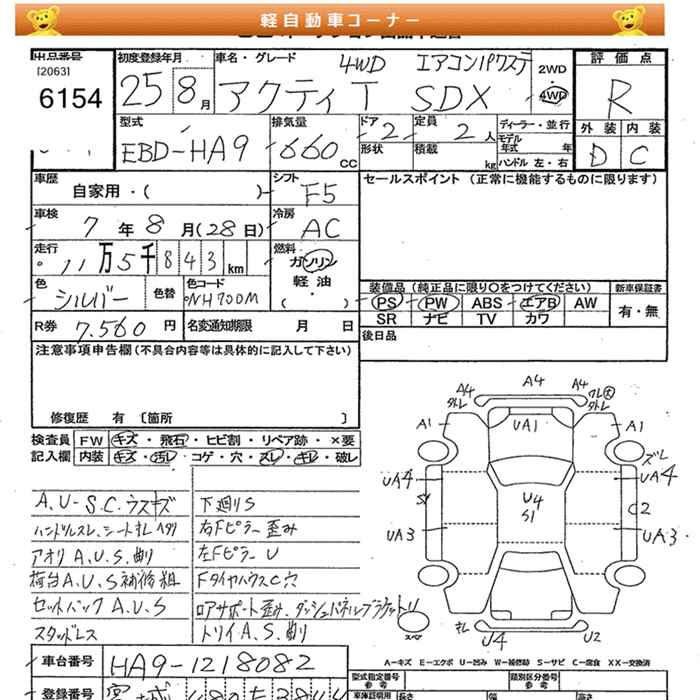 軽自動車コーナー
出品番号
[2063]
6154
初度登録年月
25 8月
車名・グレード
4WD エアコンパワステ
アクティT SDX
2WD
4WD
評価点
R
外装 内装
D C
型式
EBD-HA9
排気量
660cc
ドア 2
形状
定員 2人
積載 kg
ディーラー・並行
モデル年式 年
ハンドル 左・右
車歴
自家用・( )
シフト
F5
セールスポイント (正常に機能するものに限ります)
車検
7年8月(28日)
冷房
AC
走行
11万5千843km
燃料
ガソリン
軽油
( )
色
シルバー
色替
色コード
NH700M
装備品(純正品に限り○をつけてください)
PS PW ABS エアB AW
SR ナビ TV カワ
新車保証書
有・無
R券 7,560円
名変通知期限 月 日
後日品
注意事項申告欄(不具合内容等は具体的に記入して下さい)
修復歴 有 〔箇所 〕
検査員記入欄
FW キズ・飛石・ヒビ割・リペア跡・×要
内装 キズ・汚レ・コゲ・穴・スレ・キレ・破レ
A.U-S.C.ウスキズ
ハンドルスレ、シートキレヘタリ
アオリA.U.S.曲り
荷台A.U.S補修粗
セットバックA.U.S
スタッドレス
下廻りS
右Fピラー歪み
左FピラーU
FタイヤハウスC穴
コアサポート歪み、ダッシュパネルブラケットU
トリイA.S.曲り
A4
A4
A4
A1
UA1
A1
ズレ
UA4
UA4
S1
U4
S1
C2
UA3
UA3
スペア
キレ
U4
U2
車台番号
HA9-1218082
A-キズ E-エクボ U-凹み W-補修跡 S-サビ C-腐食 XX-交換済
型式指定番号
参考
類別区分番号
参考
登録番号
長さ
幅
高さ